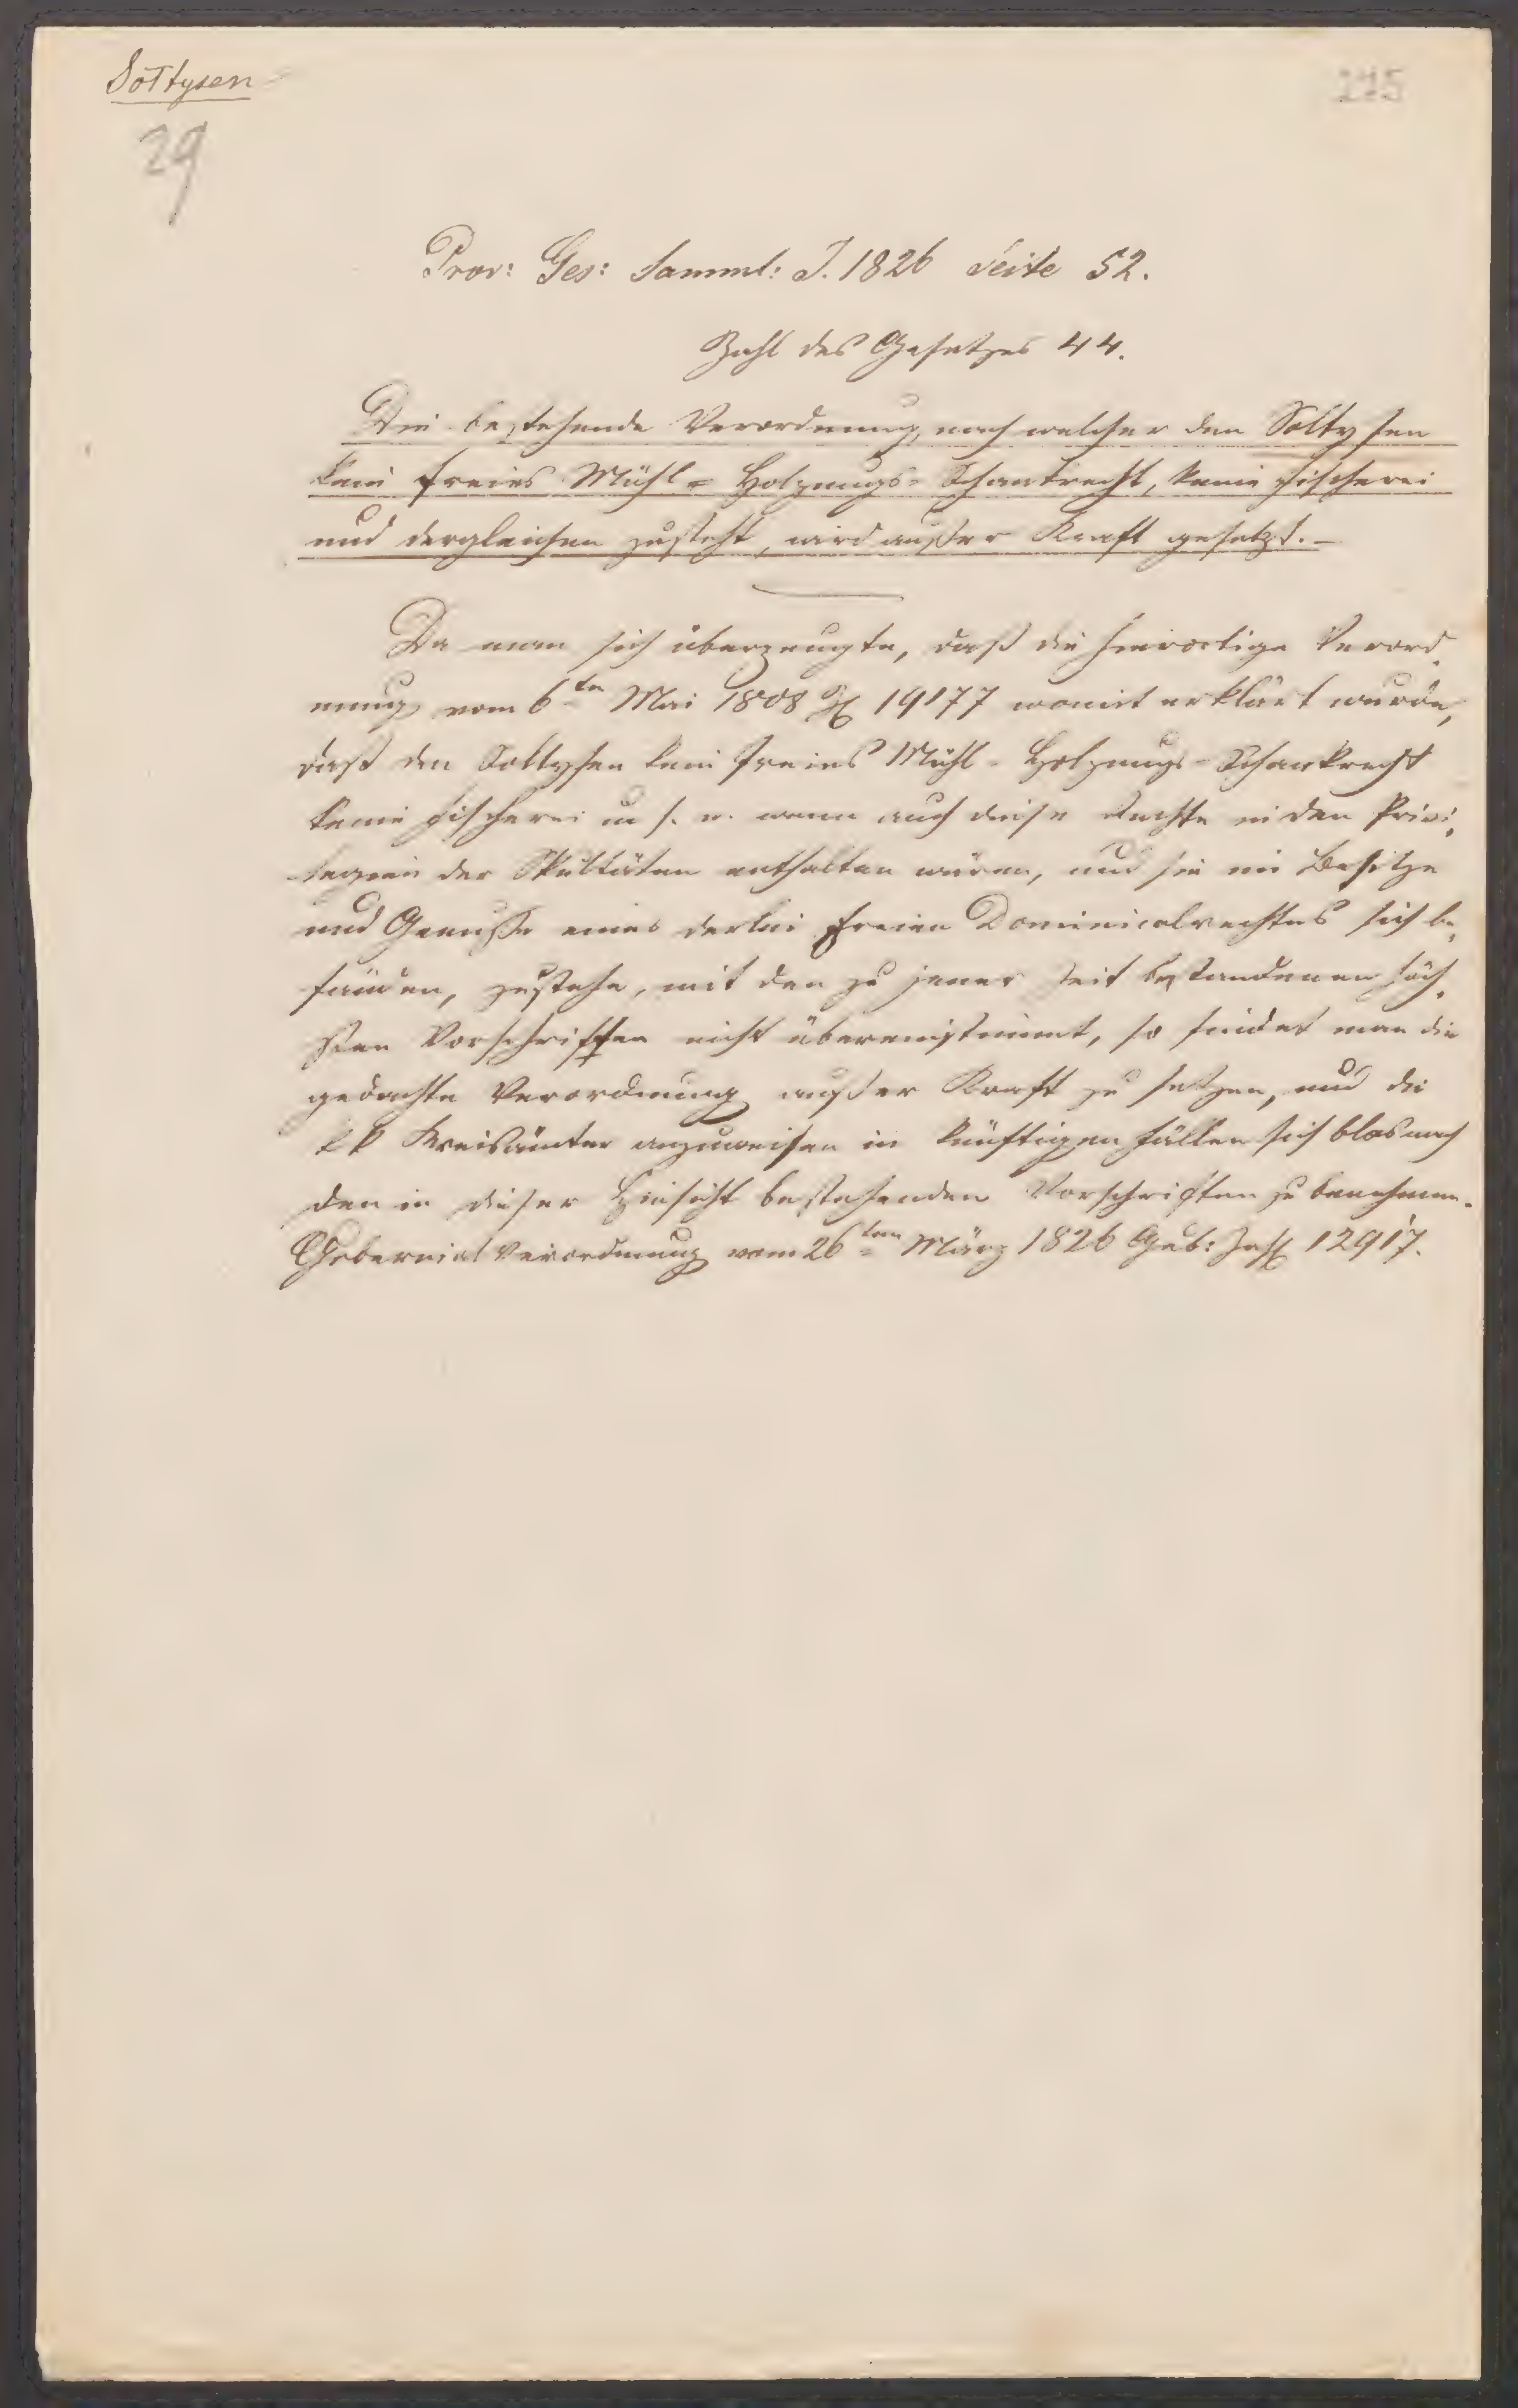 Soltysen
29
Prov: Ges: Samml: J. 1826 Seite 52.
Zahl des Gesetzes 44.
Die bestehende Verordnung, nach welcher den Soltysen
kein freies Mühl= Holzungs= Schankrecht, keine Fischerei
und dergleichen zusteht, wird außer Kraft gesetzt.–
Da man sich überzeugte, daß die hierortige Verord-
nung vom 6ten Mai 1808 Z 19177 womit erklärt wurde,
daß den Soltysen kein freies Mühl- Holzungs- Schankrecht
keine Fischerei u. s. w. wenn auch diese Rechte in den Privi-
legien der Skultäten enthalten wären, und sie im Besitze
und Genuße eines derlei freien Dominicalrechtes sich be-
fänden, zustehe, mit den zu jener Zeit bestandenen höch-
sten Vorschriften nicht übereinstimmt, so findet man die
gedachte Verordnung außer Kraft zu setzen, und die
kk Kreisämter anzuweisen in künftigen Fällen sich blos nach
den in dieser Hinsicht bestehenden Vorschriften zu benehmen.
Gubernial Verordnung vom 26ten März 1826 Gub: Zahl 12917.